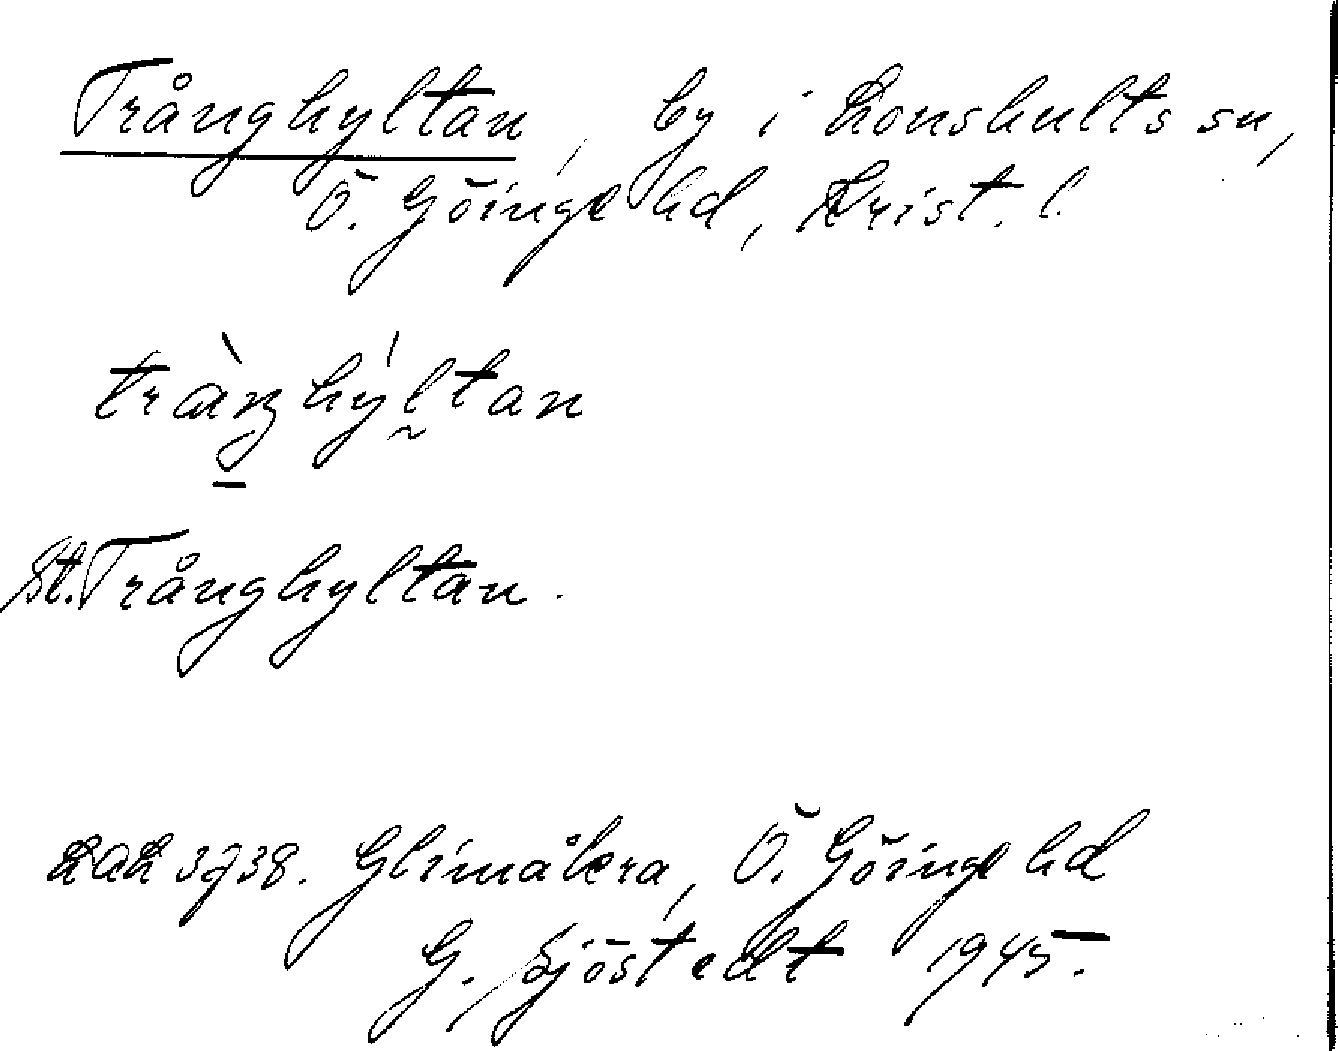 Trånghyltan, by i Lönshults sn,
Ö. Göinge hd, Krist. l.
tràŋhýltan
St. Trånghyltan.
LAL 3738. Glimåkra, Ö. Göinge hd
G. Sjöstedt 1945.